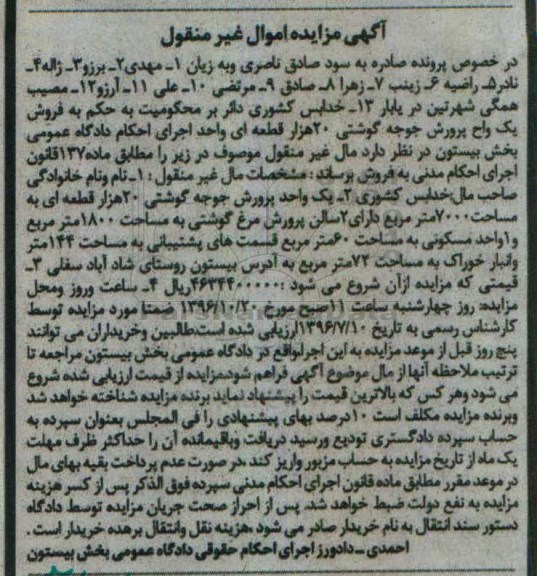 آگهی مزایده اموال غیر منقول
در خصوص پرونده صادره به سود صادق ناصری وبه زیان ۱- مهدی۲- برزو۳- ژاله۴-
نادر۵- راضیه ۶- زینب ۷- زهرا ۸- صادق ۹- مرتضی ۱۰- علی ۱۱- آرزو۱۲- مصیب
همگی شهرتین در یابار ۱۳- خدابس کشوری دائر بر محکومیت به حکم به فروش
یک واح پرورش جوجه گوشتی ۲۰هزار قطعه ای واحد اجرای احکام دادگاه عمومی
بخش بیستون در نظر دارد مال غیر منقول موصوف در زیر را مطابق ماده۱۳۷قانون
اجرای احکام مدنی به فروش برساند : مشخصات مال غیر منقول : ۱- نام ونام خانوادگی
صاحب مال:خدابس کشوری ۲- یک واحد پرورش جوجه گوشتی ۲۰هزار قطعه ای به
مساحت۷۰۰۰متر مربع دارای۲سالن پرورش مرغ گوشتی به مساحت ۱۸۰۰متر مربع
و۱واحد مسکونی به مساحت ۶۰متر مربع قسمت های پشتیبانی به مساحت ۱۴۴متر
وانبار خوراک به مساحت ۷۲متر مربع به آدرس بیستون روستای شاد آباد سفلی ۳-
قیمتی که مزایده ازآن شروع می شود :۴۶۳۴۴۰۰۰۰۰ریال ۴- ساعت وروز ومحل
مزایده: روز چهارشنبه ساعت ۱۱صبح مورخ ۱۳۹۶/۱۰/۲۰ ضمنا مورد مزایده توسط
کارشناس رسمی به تاریخ ۱۳۹۶/۷/۱۰ارزیابی شده است.طالبین وخریداران می توانند
پنج روز قبل از موعد مزایده به این اجراواقع در دادگاه عمومی بخش بیستون مراجعه تا
ترتیب ملاحظه آنها از مال موضوع آگهی فراهم شود.مزایده از قیمت ارزیابی شده شروع
می شود وهر کس که بالاترین قیمت را پیشنهاد نماید برنده مزایده شناخته خواهد شد
وبرنده مزایده مکلف است ۱۰درصد بهای پیشنهادی را فی المجلس بعنوان سپرده به
حساب سپرده دادگستری تودیع ورسید دریافت وباقیمانده آن را حداکثر ظرف مهلت
یک ماه از تاریخ مزایده به حساب مزبور واریز کند .در صورت عدم پرداخت بقیه بهای مال
در موعد مقرر مطابق ماده قانون اجرای احکام مدنی سپرده فوق الذکر پس از کسر هزینه
مزایده به نفع دولت ضبط خواهد شد. پس از احراز صحت جریان مزایده توسط دادگاه
دستور سند انتقال به نام خریدار صادر می شود .هزینه نقل وانتقال برهده خریدار است .
احمدی - دادورز اجرای احکام حقوقی دادگاه عمومی بخش بیستون